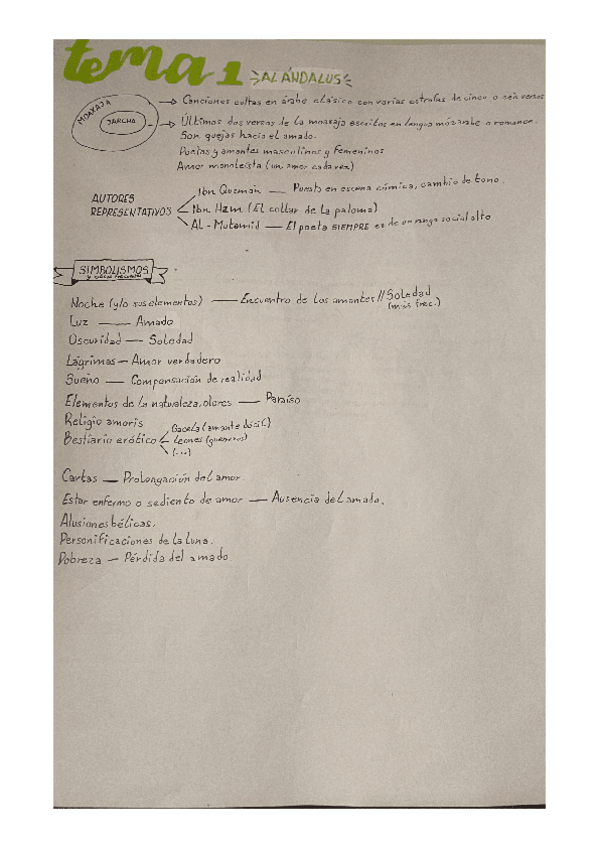 tema 1 AL ÁNDALUS
MOAXAJA
JARCHA
Canciones cultas en árabe clásico con varias estrofas de cinco o seis versos
Últimos dos versos de la moaxaja escritos en lengua mozárabe o romance.
Son quejas hacia el amado.
Poetas y amantes masculinos y femeninos
Amor monoteísta (un amor cada vez)
AUTORES REPRESENTATIVOS
Ibn Quzman — Puesta en escena cómica, cambio de tono.
Ibn Hazm (El collar de la paloma)
AL-Mutamid — El poeta SIEMPRE es de un rango social alto
SIMBOLISMOS
Noche (y/o sus elementos) — Encuentro de los amantes // Soledad
(más frec.)
Luz — Amado
Oscuridad — Soledad
Lágrimas — Amor verdadero
Sueño — Compensación de realidad
Elementos de la naturaleza, olores — Paraíso
Religio amoris
Bestiario erótico
Gacela (amante dócil)
Leones (guerreros)
(...)
Cartas — Prolongación del amor
Estar enfermo o sediento de amor — Ausencia del amado.
Alusiones bélicas.
Personificaciones de la luna.
Pobreza — Pérdida del amado